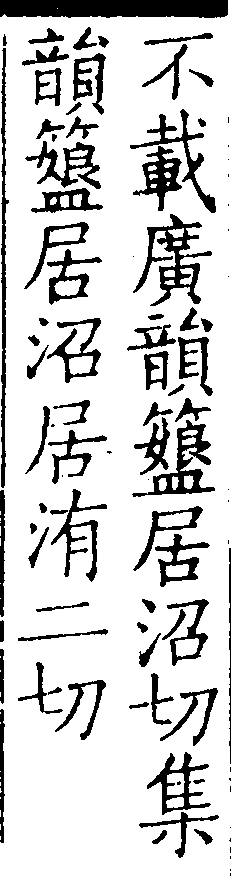 不載廣韻居沼切集
韻居沼居洧二切